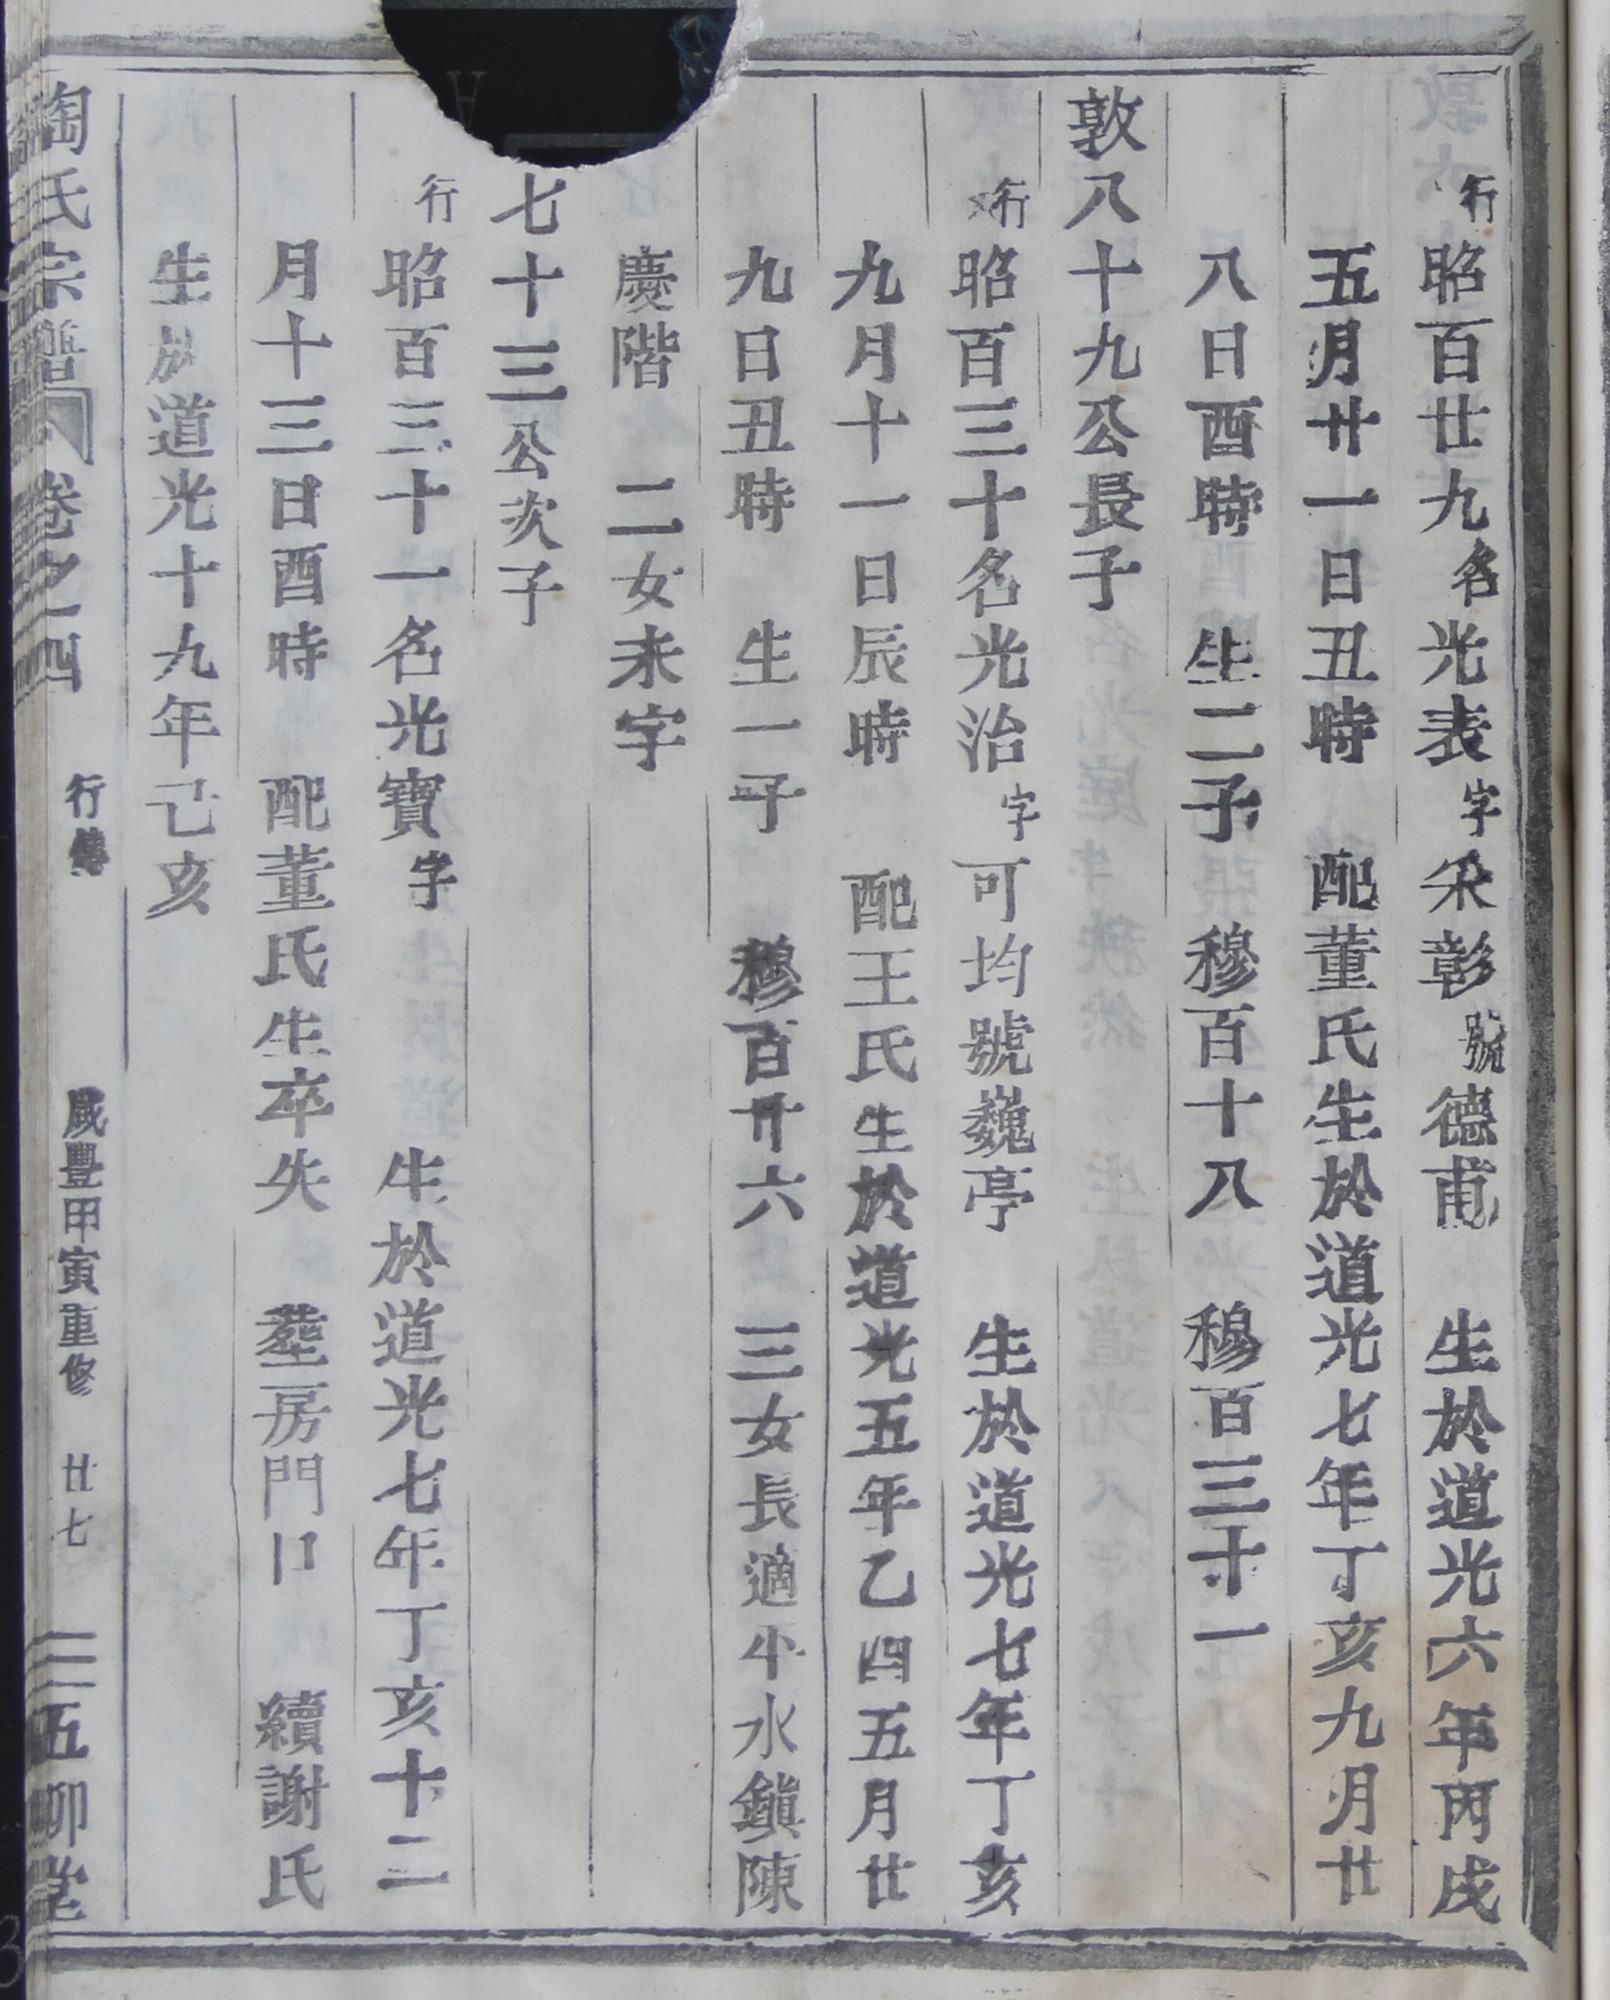 行昭百廿九名光表字采彰號德甫　生於道光六年丙戌
五月廿一日丑時　配董氏生於道光七年丁亥九月廿
八日酉時　生二子　穆百十八　穆百三十一
敦八十九公長子
行昭百三十名光治字可均號巍亭　生於道光七年丁亥
九月十一日辰時　配王氏生於道光五年乙酉五月廿
九日丑時　生一子　穆百廿六　三女長適小水鎮陳
慶階　二女未字
七十三公次子
行昭百三十一名光寶字　生於道光七年丁亥十二
月十三日酉時　配董氏生卒失　塟房門口　續謝氏
生於道光十九年己亥
陶氏宗譜　卷之四　行傳　咸豐甲寅重修　廿七　五柳堂